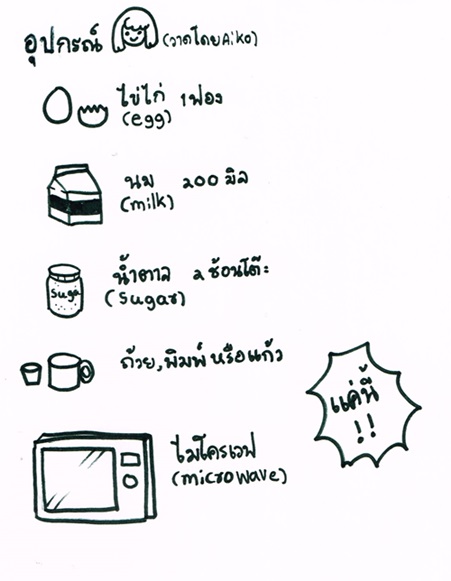 อุปกรณ์ (วาดโดยAiko)
ไข่ไก่ 1ฟอง
(egg)
นม 200 มิล
(milk)
น้ำตาล 2 ช้อนโต๊ะ
(Sugar)
Suga
ถ้วย,พิมพ์ หรือแก้ว
แค่นี้
!!
ไมโครเวฟ
(microwave)